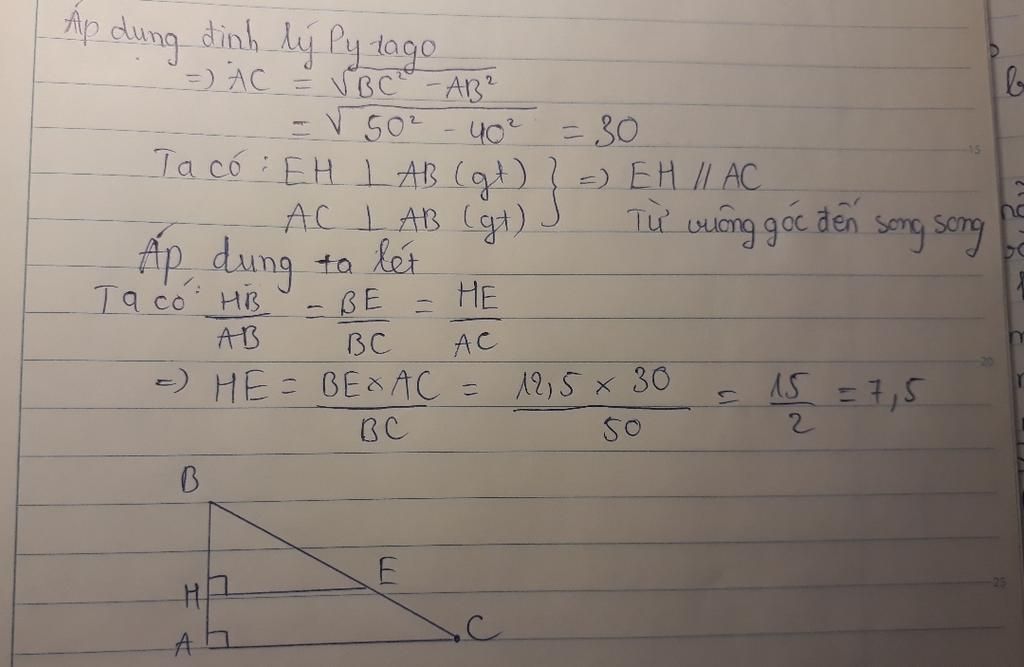 Áp dụng định lý Pytago
=> AC = √BC² - AB²
= √50² - 40² = 30
Ta có : EH ⊥ AB (gt) } => EH // AC
AC ⊥ AB (gt) Từ vuông góc đến song song
Áp dụng ta lét
Ta có: HB/AB = BE/BC = HE/AC
=> HE = BE×AC/BC = 12,5 × 30/50 = 15/2 = 7,5
B
E
H
A
C
15
20
25